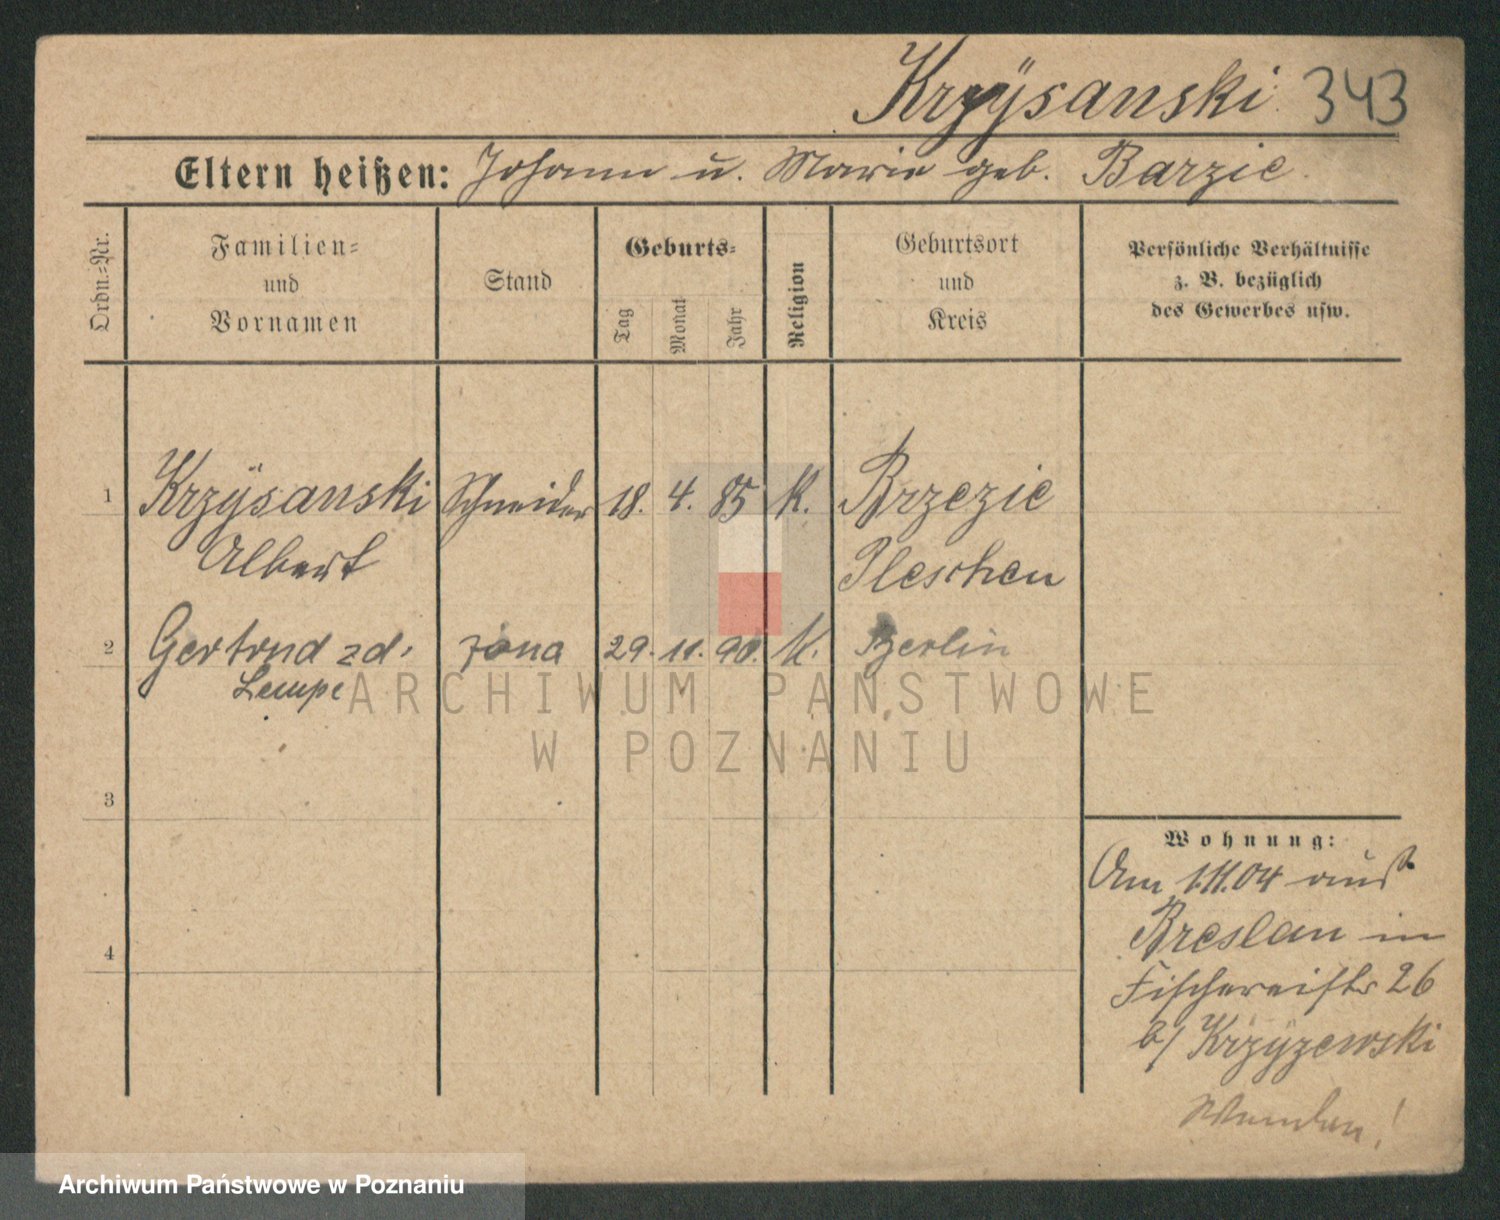 Krzÿsanski 343
Eltern heißen: Johann u. Marie geb. Barzic
Ordn.-Nr.
Familien-
und
Vornamen
Stand
Geburts-
Tag
Monat
Jahr
Religion
Geburtsort
und
Kreis
Persönliche Verhältnisse
z. B. bezüglich
des Gewerbes usw.
1 Krzÿsanski Schneider 18. 4. 85 K. Brzezie
Albert Pleschen
2 Gertrud zd. żona 29. 11. 90. K. Berlin
Lempe
ARCHIWUM PAŃSTWOWE
W POZNANIU
3
4
Wohnung:
Am 1.11.04 aus
Breslau in
Fischereistr 26
b/ Krzÿzewski
Wenden!
Archiwum Państwowe w Poznaniu